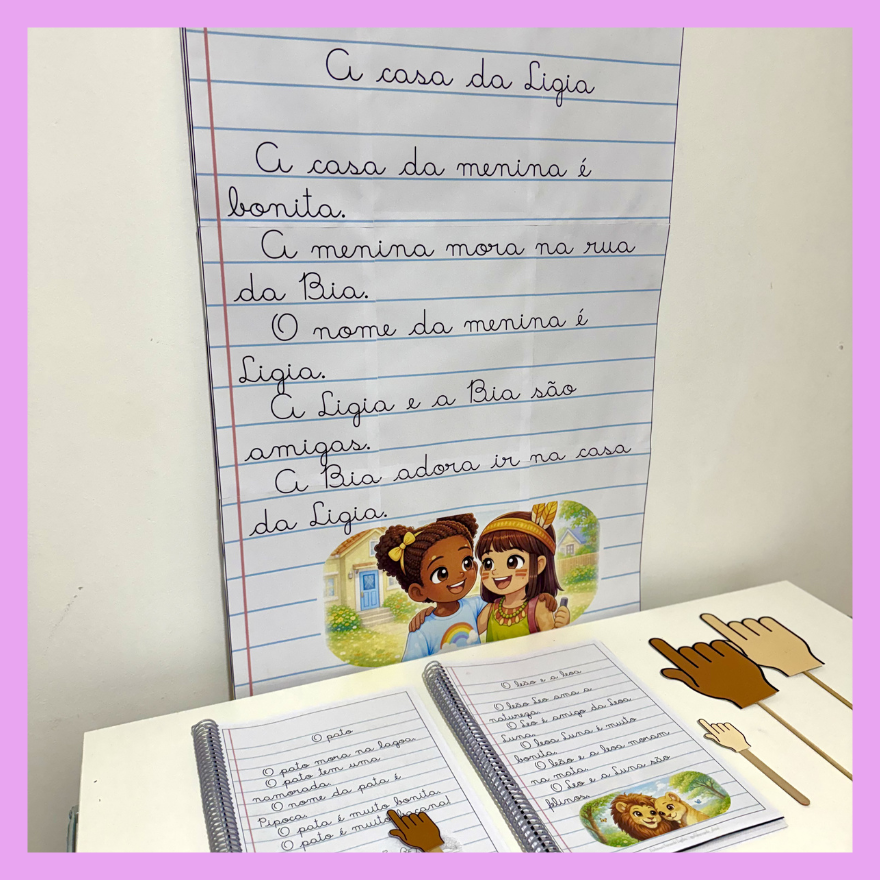 A casa da Ligia
A casa da menina é
bonita.
A menina mora na rua
da Bia.
O nome da menina é
Ligia.
A Ligia e a Bia são
amigas.
A Bia adora ir na casa
da Ligia.
O pato
O pato mora na lagoa.
O pato tem uma
namorada.
O nome da pata é
Pipoca.
O pata é muito bonita.
O pato é muito bacana!
O leão e a leoa
O leão Leo ama a
natureza.
O Leo é amigo da Leoa
Luna.
O leoa Luna é muito
bonita.
O leão e a leoa moram
na mata.
O Leo e a Luna são
felinos.